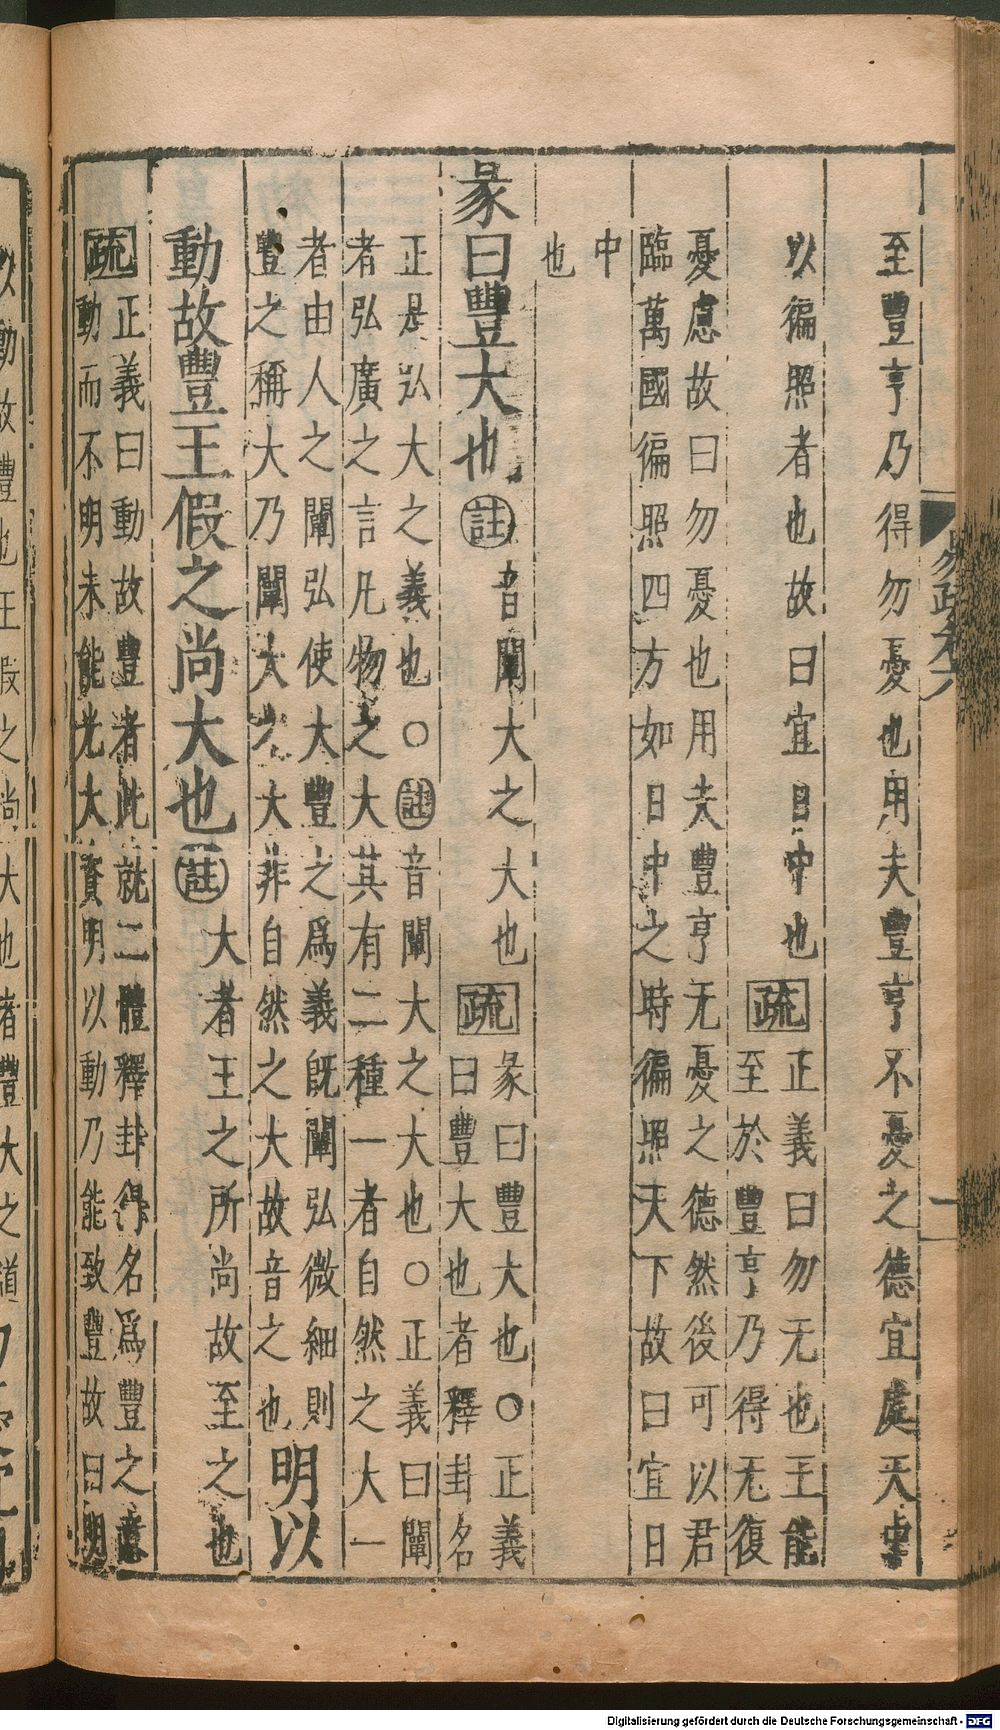 至豐亨乃得勿憂也用夫豐亨不憂之德宜處天中
以徧照者也故曰宜日中也疏正義曰勿无也王能
至於豐亨乃得无復
憂慮故曰勿憂也用夫豐亨无憂之德然後可以君
臨萬國徧照四方如日中之時徧照天下故曰宜日
中
也
彖曰豐大也註音闡大之大也疏彖曰豐大也○正義
曰豐大也者釋卦名
正是弘大之義也○註音闡大之大也○正義曰闡
者弘廣之言凡物之大其有二種一者自然之大一
者由人之闡弘使大豐之爲義旣闡弘微細則
豐之稱大乃闡大之大非自然之大故音之也明以
動故豐王假之尚大也註大者王之所尚故至之也
疏正義曰動故豐者此就二體釋卦得名爲豐之意
動而不明未能光大資明以動乃能致豐故曰明
以動故豐也王假之尚大也者豐大之道
易疏卷六
Digitalisierung gefördert durch die Deutsche Forschungsgemeinschaft - DFG